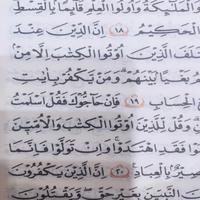 وَالْمَلَٰٓئِكَةُ وَأُولُوا۟ الْعِلْمِ قَآئِمًۢا بِالْقِسْطِ
الْحَكِيمُ ١٨ إِنَّ الدِّينَ عِندَ
خْتَلَفَ الَّذِينَ أُوتُوا۟ الْكِتَٰبَ إِلَّا مِنۢ
بَغْيًۢا بَيْنَهُمْ وَمَن يَكْفُرْ بِـَٔايَٰتِ
الْحِسَابِ ١٩ فَإِنْ حَآجُّوكَ فَقُلْ أَسْلَمْتُ
وَقُل لِّلَّذِينَ أُوتُوا۟ الْكِتَٰبَ وَالْأُمِّيِّـۧنَ
فَقَدِ اهْتَدَوا۟ وَّإِن تَوَلَّوْا۟ فَإِنَّمَا
بَصِيرٌۢ بِالْعِبَادِ ٢٠ إِنَّ الَّذِينَ يَكْفُرُونَ
النَّبِيِّـۧنَ بِغَيْرِ حَقٍّ وَيَقْتُلُونَ